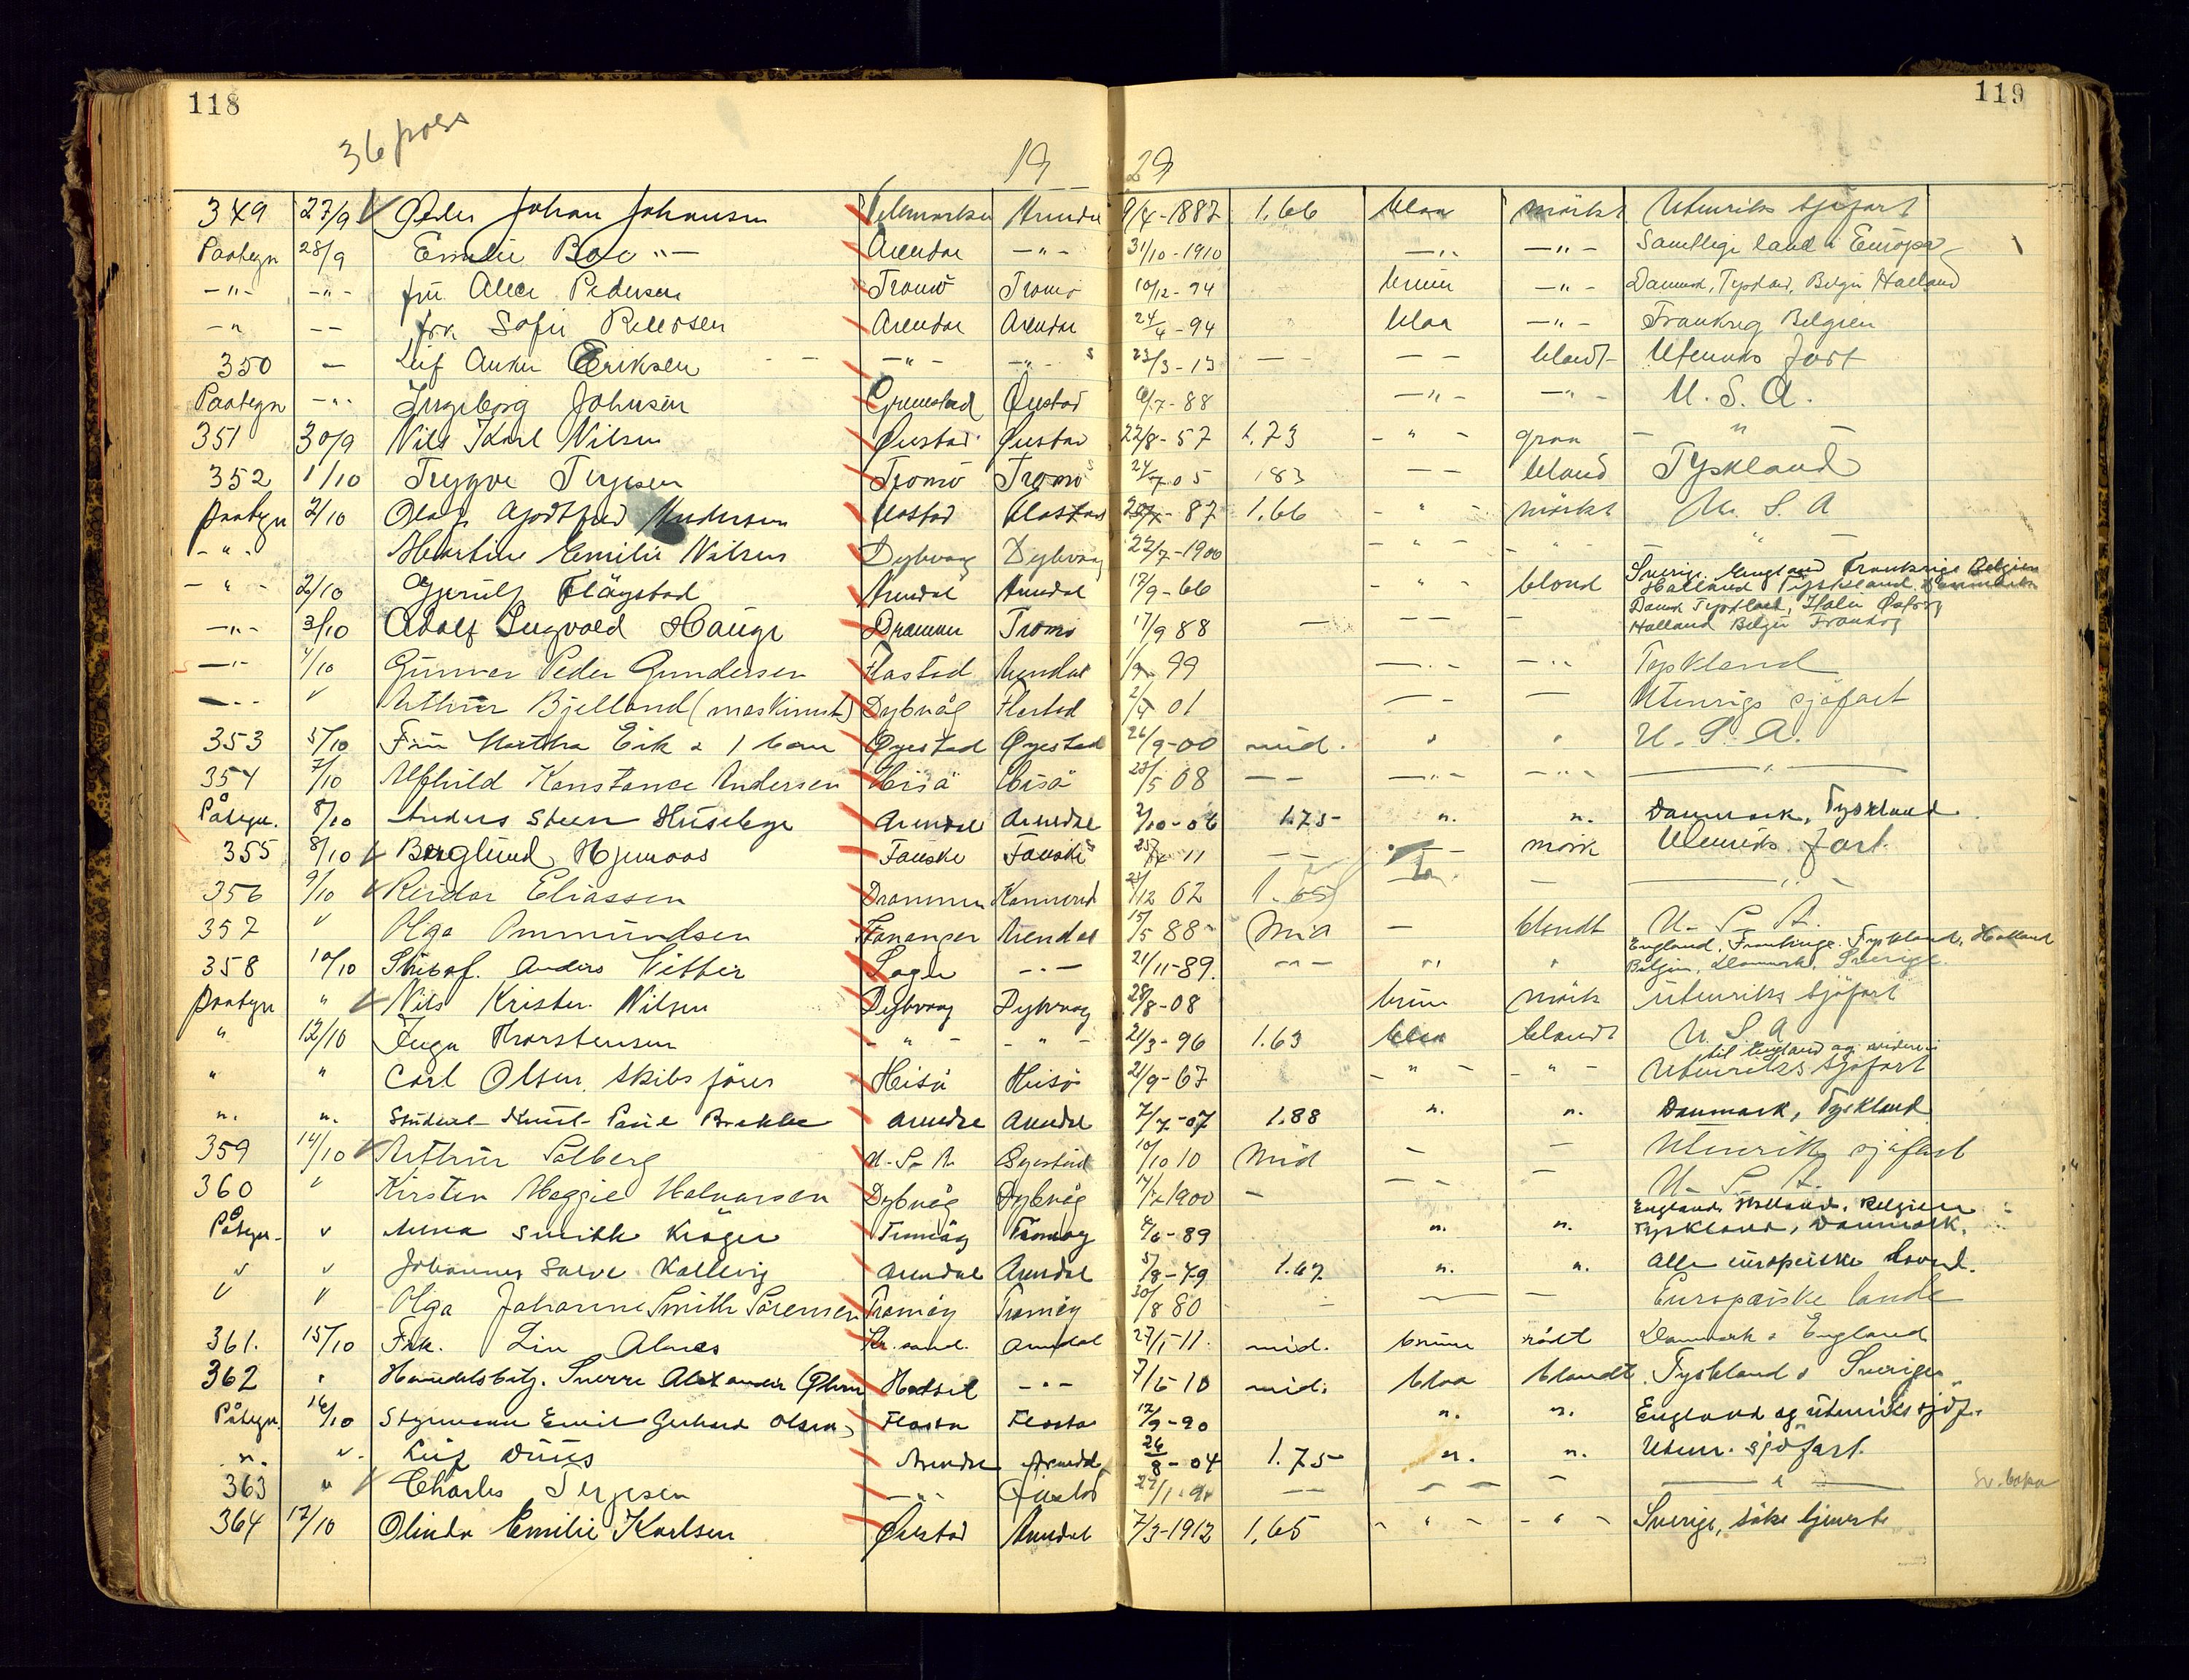 118
119
36 pass
19 29
349 27/9 Peder Johan Johansen Arendal 9/4-1887 1,66 blaa mörkt Utenriks sjöfart
Paategn 28/9 Emilie Boe -"- Arendal -"- 31/10-1910 -"- -"- Samtlige land i Europa
-"- -"- fru Alice Pedersen Tromö Tromö 10/12-94 brun -"- Danmark, Tyskland, Belgien Holland
-"- -- frk Sofie Arendal Arendal 24/4-94 blaa -"- Frankrig Belgien
350 - Leif Anker Eriksen -"- -"- 23/3-13 -- -- blondt Utenriks fart
Paategn -"- Ingeborg Johnsen Grimstad Öiestad 9/7-88 -"- -"- U. S. A.
351 30/9 Nils Karl Nilsen Öiestad Öiestad 22/8-57 1,73 -"- graa -"-
352 1/10 Trygve Terjesen Tromö Tromö 24/7 05 183 -- blond Tyskland
paategn 2/10 Olaf Godtfred Andersen Flostad Flostad 87 1,66 -"- mörkt U. S. A
-"- Martine Emilie Nilsen Dybvaag Dybvaag 22/7-1900 -"- -"- -"-
-"- 2/10 Gjerulf Fløystad Arendal Arendal 17/9-66 -"- blond Sverige England Frankrige Belgien
Holland Tyskland Danmark
-"- 3/10 Adolf Ingvald Hauge Drammen Tromö 17/9 88 - -- - Danmk Tyskland, Italien
Holland Belgien Frankrig
-"- 4/10 Gunnar Peder Gundersen Flostad Arendal 99 -"- -"- Tyskland
-"- " Arthur Bjelland (maskinist) Dybvåg Flostad 01 -- - Utenrigs sjøfart
353 5/10 Fru Martha Eik & 1 barn Øyestad Øyestad 26/9-00 mid. " " U. S. A.
354 7/10 Alfhild Konstance Andersen Hisö Hisö 23/5 08 -- -"- -"- -"-
Påtegn. 8/10 Anders Steen Huseby Arendal Arendal 2/10-06 1.75- n. n. Danmark, Tyskland
355 8/10 Berglund Fauske Fauske 11 -- -- mörk Utenriks fart.
356 9/10 Reidar Eliassen Drammen 23/12 02 1.65 - -"-
357 " Olga Ommundsen Arendal 15/5 88 Mid - blondt U. S. A.
358 10/10 Anders Vitter -"- 21/11-89. -- " " England, Frankrige. Tyskland, Holland
Belgien, Danmark, Sverige.
paategn " Nils Krister Nilsen Dybvaag Dybvaag 28/8-08 brun mörk utenriks sjöfart
" 12/10 Inga Thorstensen -"- -"- 21/3-96 1.63 blaa blondt U. S. A
" " Carl Olsen, skibsförer Hisö Hisö 21/9-67 -"- -"- til England og videre i
Utenriks sjöfart
n. n. Student Knut Paul Brekke Arendal Arendal 7/7-07 1.88 n. n. Danmark, Tyskland
359 14/10 Arthur Solberg U. S. A. Øyestad 10/10 10 Mid - - Utenriks sjøfart
360 " Kirsten Maggie Halvorsen Dybvåg Dybvåg 1900 - -- - U. S. A.
Påtegn. " Anna Smith Krøger Tromöy Tromöy 4/6-89 n. n. England, Holland, Belgien
Tyskland, Danmark.
" " Johannes Salve Kallevig Arendal Arendal 5/8-79 1.67 n. n. alle europeiske land.
" " Olga Johanne Smith Sørensen Tromöy Tromöy 30/8 80 - -- - Europæiske lande
361. 15/10 Frk. Liv Alnæs Kr.sand. Arendal 27/1-11. mid. brune rödt Danmark & England
362 " Handelsbetj. Sverre Alexander -"- 7/5-10 mid. blaa blondt Tyskland & Sverige
Påtegn. 16/10 Styrmann Emil Gerhard Olsen, Flosta Flosta 17/9-90 n. n. England og utenriks sjöf.
n. ". Leif Arendal Arendal 26/8-04 1.75- n. n. Utenr. sjöfart.
363 " Charles Terjesen -"- Öiestad 27/1-91 -- -- - -"-
364 17/10 Olinda Emilie Karlsen Öiestad Arendal 7/3-1912 1,65 -"- -"- Sverige, søke hjemsted